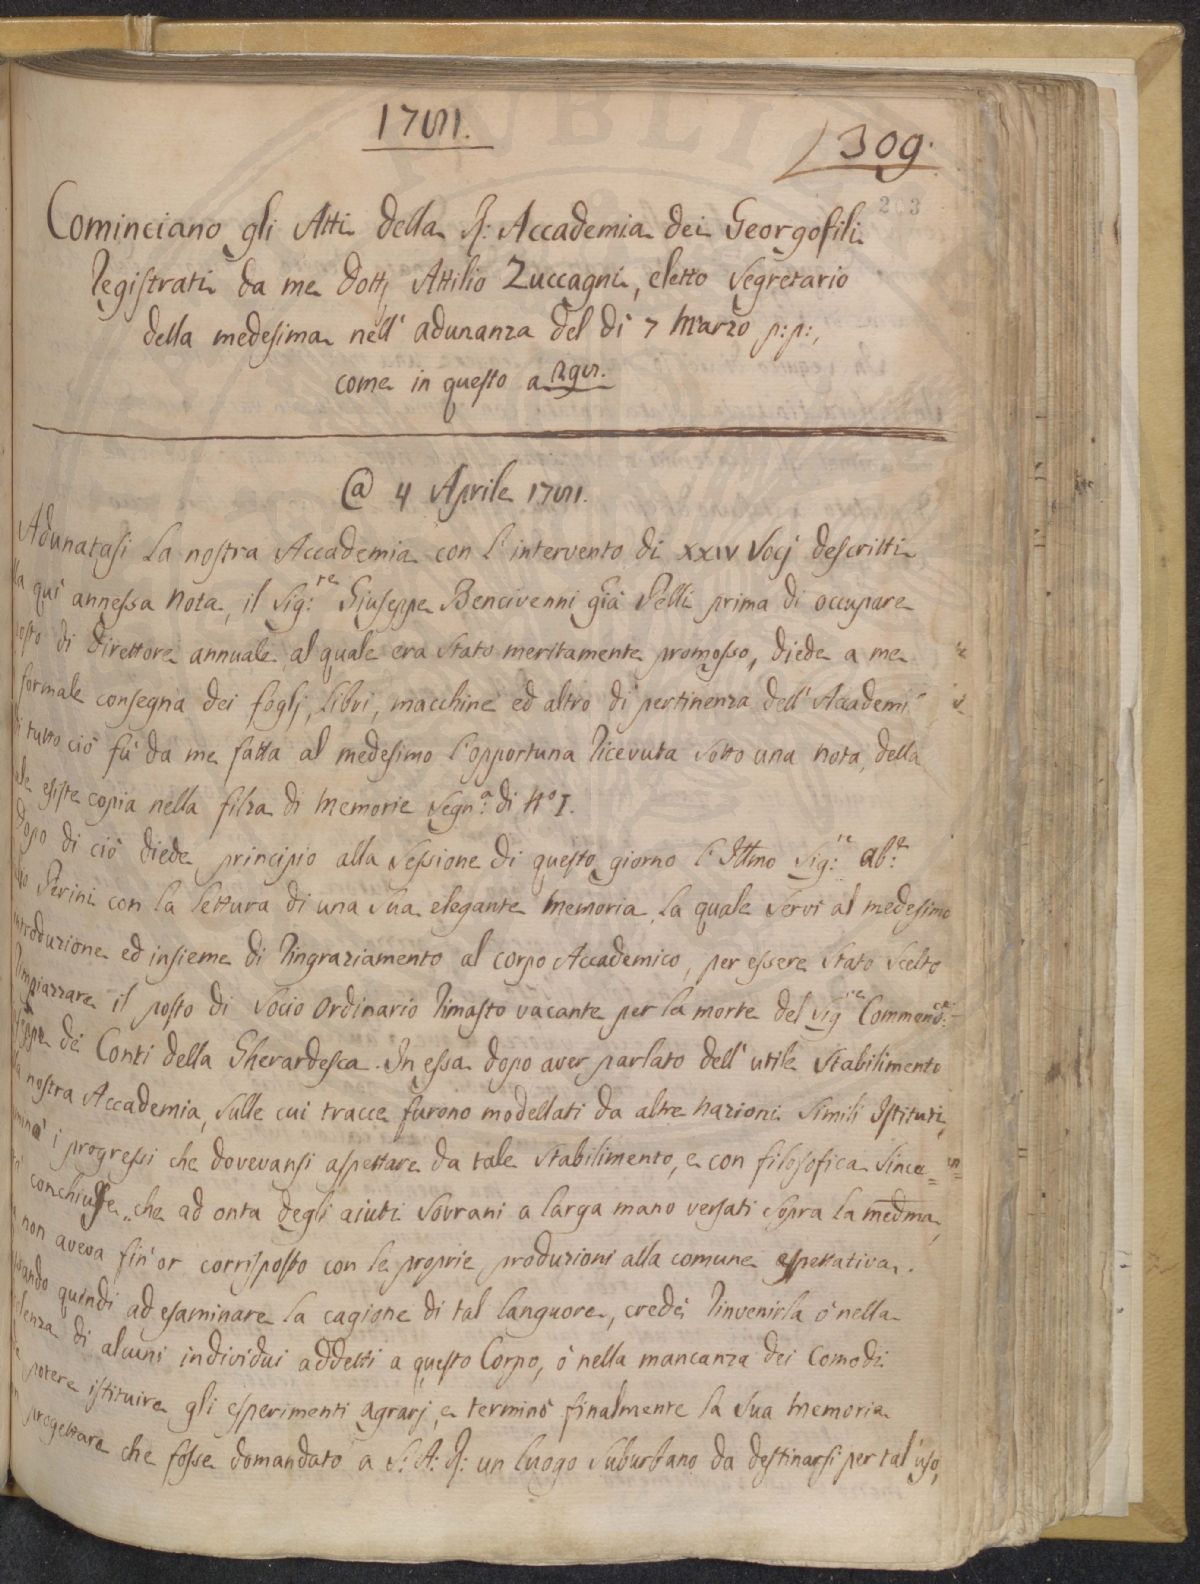 309.
203
Cominciano gli Atti della R: Accademia dei Georgofili
Registrati da me Dott. Attilio Zuccagni, eletto Segretario
della medesima nell' adunanza del di 7 Marzo p:p:,
come in questo a
@ 4 Aprile
Adunatasi la nostra Accademia con l'intervento di XXIV Socj descritti
qui annessa nota, il Sig:re Giuseppe Bencivenni già Pelli prima di occupare
di Direttore annuale, al quale era stato meritamente promosso, diede a me
formale consegna dei foglj, libri, macchine ed altro di pertinenza dell' Accademi
tutto ciò fù da me fatta al medesimo l'opportuna ricevuta sotto una nota, della
esiste copia nella filza di Memorie Segn:a di N.o I.
Dopo di ciò diede principio alla Sessione di questo giorno l'Illmo Sig:re Ab:e
Perini con la lettura di una sua elegante Memoria, la quale servì al medesimo
ed insieme di ringraziamento al corpo Accademico, per essere stato scelto
il posto di Socio Ordinario rimasto vacante per la morte del Sig:re Commend:e
dei Conti della Gherardesca. In essa dopo aver parlato dell' utile stabilimento
nostra Accademia, sulle cui tracce furono modellati da altre nazioni simili Istituti,
i progressi che dovevansi aspettare da tale stabilimento, e con filosofica since=
conchiuse „ che ad onta degli aiuti Sovrani a larga mano versati sopra la medma,
non aveva fin' or corrisposto con le proprie produzioni alla comune espettativa.
quindi ad esaminare la cagione di tal languore, credè rinvenirla ò nella
di alcuni individui addetti a questo Corpo, ò nella mancanza dei comodi
potere istituire gli esperimenti agrarj, e terminò finalmente la sua Memoria
progettare che fosse domandato a S: A: R: un luogo suburbano da destinarsi per tal uso,